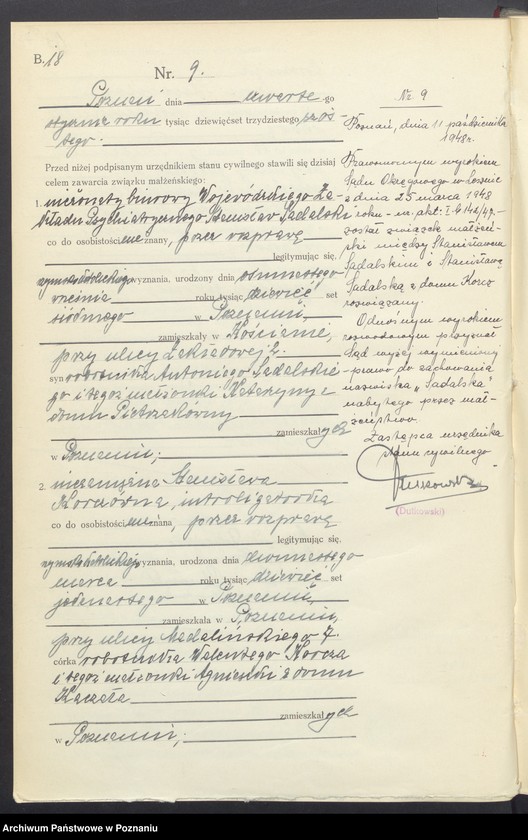 B. 18
Nr. 9.
Poznań dnia czwartego
stycznia roku tysiąc dziewięćset trzydziestego szós-
tego.
Przed niżej podpisanym urzędnikiem stanu cywilnego stawili się dzisiaj
celem zawarcia związku małżeńskiego:
1. nieżonaty biurowy Wojewódzkiego Za-
kładu Psychiatrycznego Stanisław Sadalski
co do osobistości nie znany, przez rozprawę
legitymując się,
rzymskokatolickiego wyznania, urodzony dnia ósmnastego
września roku tysiąc dziewięć set
siódmego w Poznaniu,
zamieszkały w Kościanie,
przy ulicy
syn robotnika Antoniego Sadalskie
go i tegoż małżonki Katarzyny z
domu Pietrzakówny
zamieszkałych
w Poznaniu;
2. niezamężna Stanisława
Korczówna, introligatorka
co do osobistości nieznana, przez rozprawę
legitymując się,
rzymskokatolickiego wyznania, urodzona dnia dwunastego
marca roku tysiąc dziewięć set
jedenastego w Poznaniu,
zamieszkała w Poznaniu,
przy ulicy Madalińskiego 7.
córka robotnika Walentego Korcza
i tegoż małżonki Agnieszki z domu
Kaczała
zamieszkałych
w Poznaniu;
Nr 9
Poznań, dnia 11 października
1948 r.
Prawomocnym wyrokiem
Sądu Okręgowego w Lesznie
z dnia 25 marca 1948
roku - na akt:
został związek małżeń-
ski między Stanisławem
Sadalskim i Stanisławą
Sadalską z domu Korcz
rozwiązany.
Odnośnym wyrokiem
rozwodowym przyznał
Sąd wyżej wymienionej
prawo do zachowania
nazwiska "Sadalska"
nabytego przez mał-
żeństwo.
Zastępca urzędnika
stanu cywilnego
(Dutkowski)
Archiwum Państwowe w Poznaniu